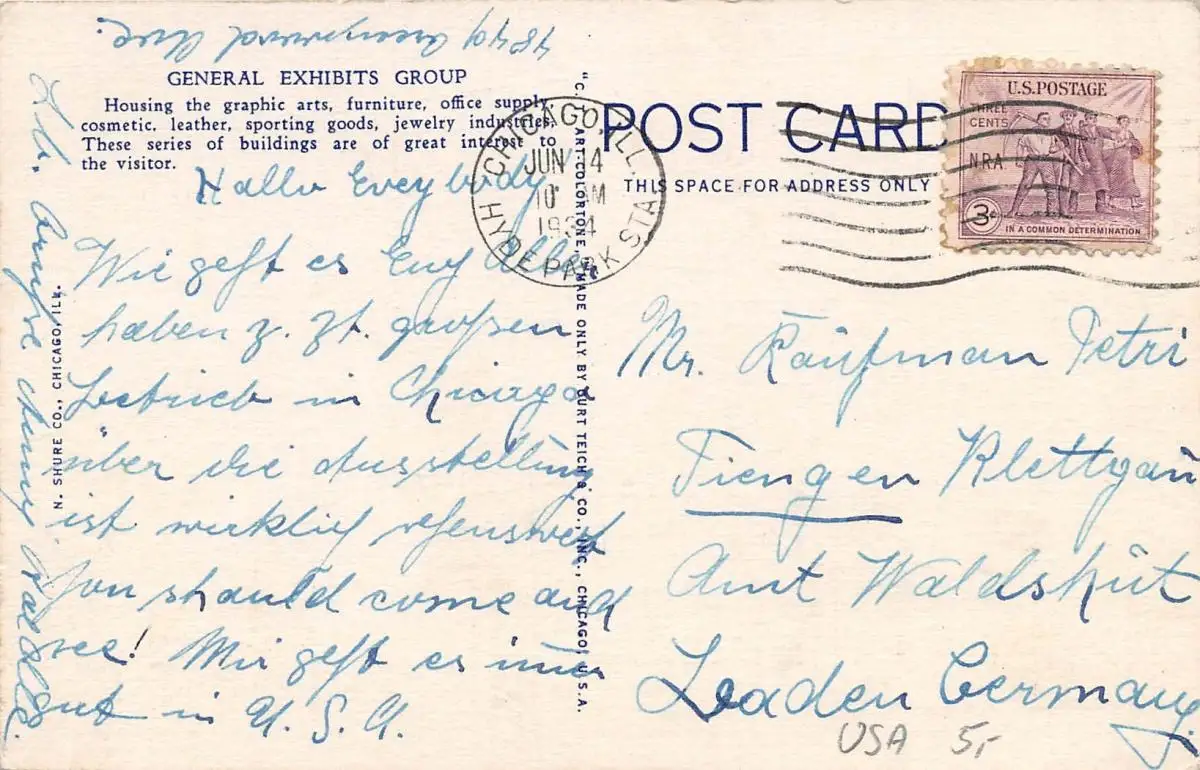 4849 Greenwood Ave.
GENERAL EXHIBITS GROUP
Housing the graphic arts, furniture, office supply,
cosmetic, leather, sporting goods, jewelry industries.
These series of buildings are of great interest to
the visitor.
Hallo Evey body
Wie geht es Euch Allen
haben z. Zt. großen
Betrieb in Chicago
über die Ausstellung
ist wirklich sehenswert
You should come and
see! Mir geht es immer
gut in U.S.A.
Grüße
N. SHURE CO., CHICAGO, ILL.
"C. T. ART-COLORTONE," MADE ONLY BY CURT TEICH & CO., INC., CHICAGO, U.S.A.
POST CARD
THIS SPACE FOR ADDRESS ONLY
CHICAGO, ILL.
JUN 14
10 AM
1934
HYDE PARK STA.
U.S. POSTAGE
THREE
CENTS
N.R.A.
3¢
IN A COMMON DETERMINATION
Mr. Kaufman Petri
Tiengen Klettgau
Amt Waldshut
Baden Germany
USA 5,-